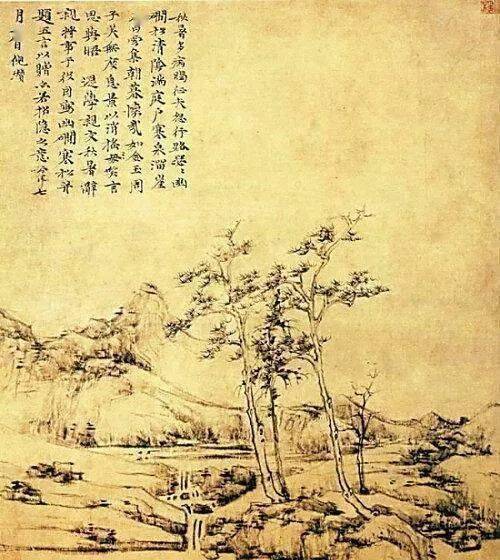 秋暑多病暍征夫怨行路瑟瑟幽
澗松清陰滿庭戶寒泉溜崖
白雲集朝暮懷哉如金玉周
子美無度息景以消搖笑言
思與晤 遜學親友秋暑辭
親將事于役因寫幽澗寒松并
題五言以贈亦若招隱之意云耳七
月 八日倪瓚